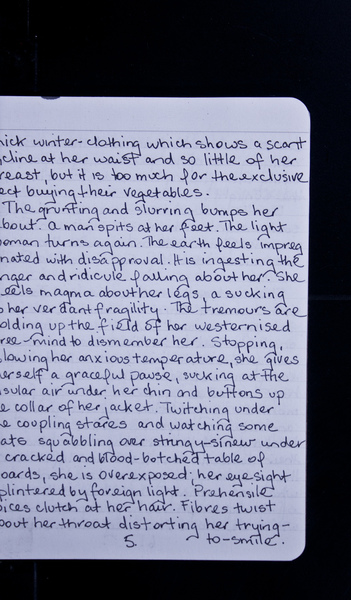 hick winter-clothing which shows a scant
cline at her waist and so little of her
reast, but it is too much for the exclusive
ect buying their vegetables.
The grunting and slurring bumps her
bout. A man spits at her feet. The light
oman turns again. The earth feels impreg
nated with disapproval. It is ingesting the
nger and ridicule falling about her. She
eels magma about her legs, a sucking
o her verdant fragility. The tremours are
olding up the field of her westernised
ree-mind to dismember her. Stopping,
lowing her anxious temperature, she gives
erself a graceful pause, sucking at the
sular air under her chin and buttons up
e collar of her jacket. Twitching under
e coupling stares and watching some
ats squabbling over stringy-sinew under
cracked and blood-botched table of
oards, she is overexposed; her eyesight
plintered by foreign light. Prehensile
oices clutch at her hair. Fibres twist
bout her throat distorting her trying-
to-smile.
5.